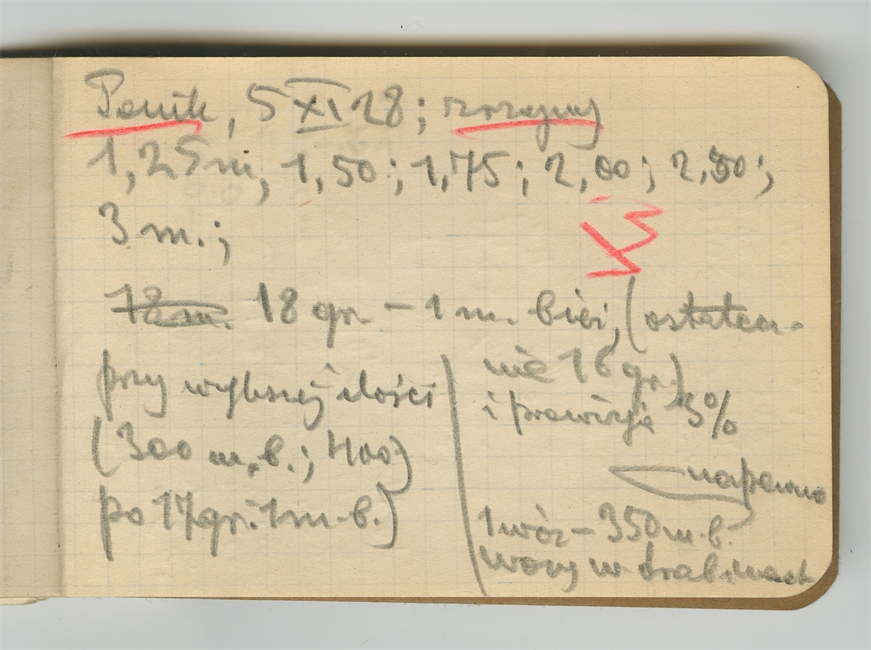 Penik, 5 XI 28;
1,25 m, 1,50; 1,75; 2,00; 2,50;
3 m.;
18 m. 18 gr. – 1 m. bież, (ostatecz-
nie 16 gr.)
i prowizja 3%
napewno
przy większej ilości
(300 m.b.; 400)
po 17 gr. 1 m.b.)
1 wóz – 350 m.b.
wozy w drabinach